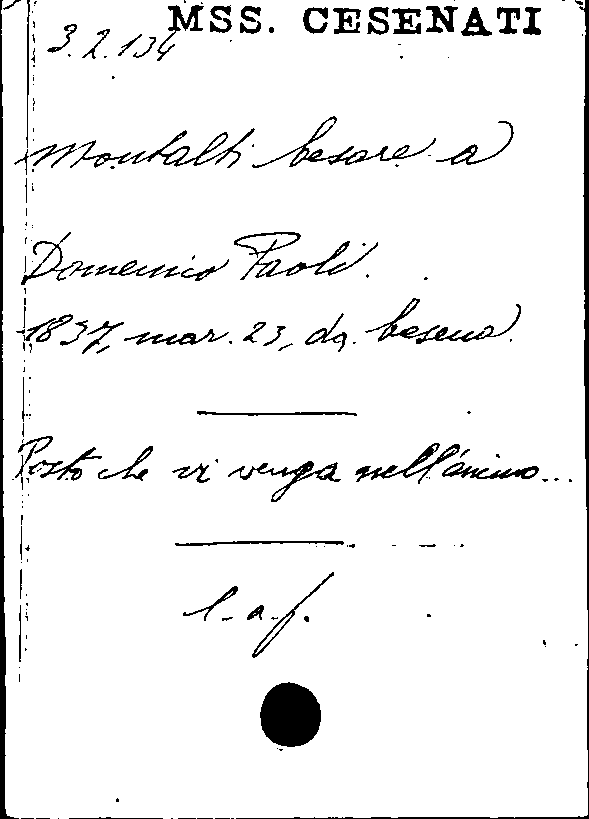 MSS. CESENATI
3.2.134
Montalti Cesare a
Domenico Paoli.
1837, mar. 23, da Cesena.
Posto che vi venga nell'animo...
l.a.f.